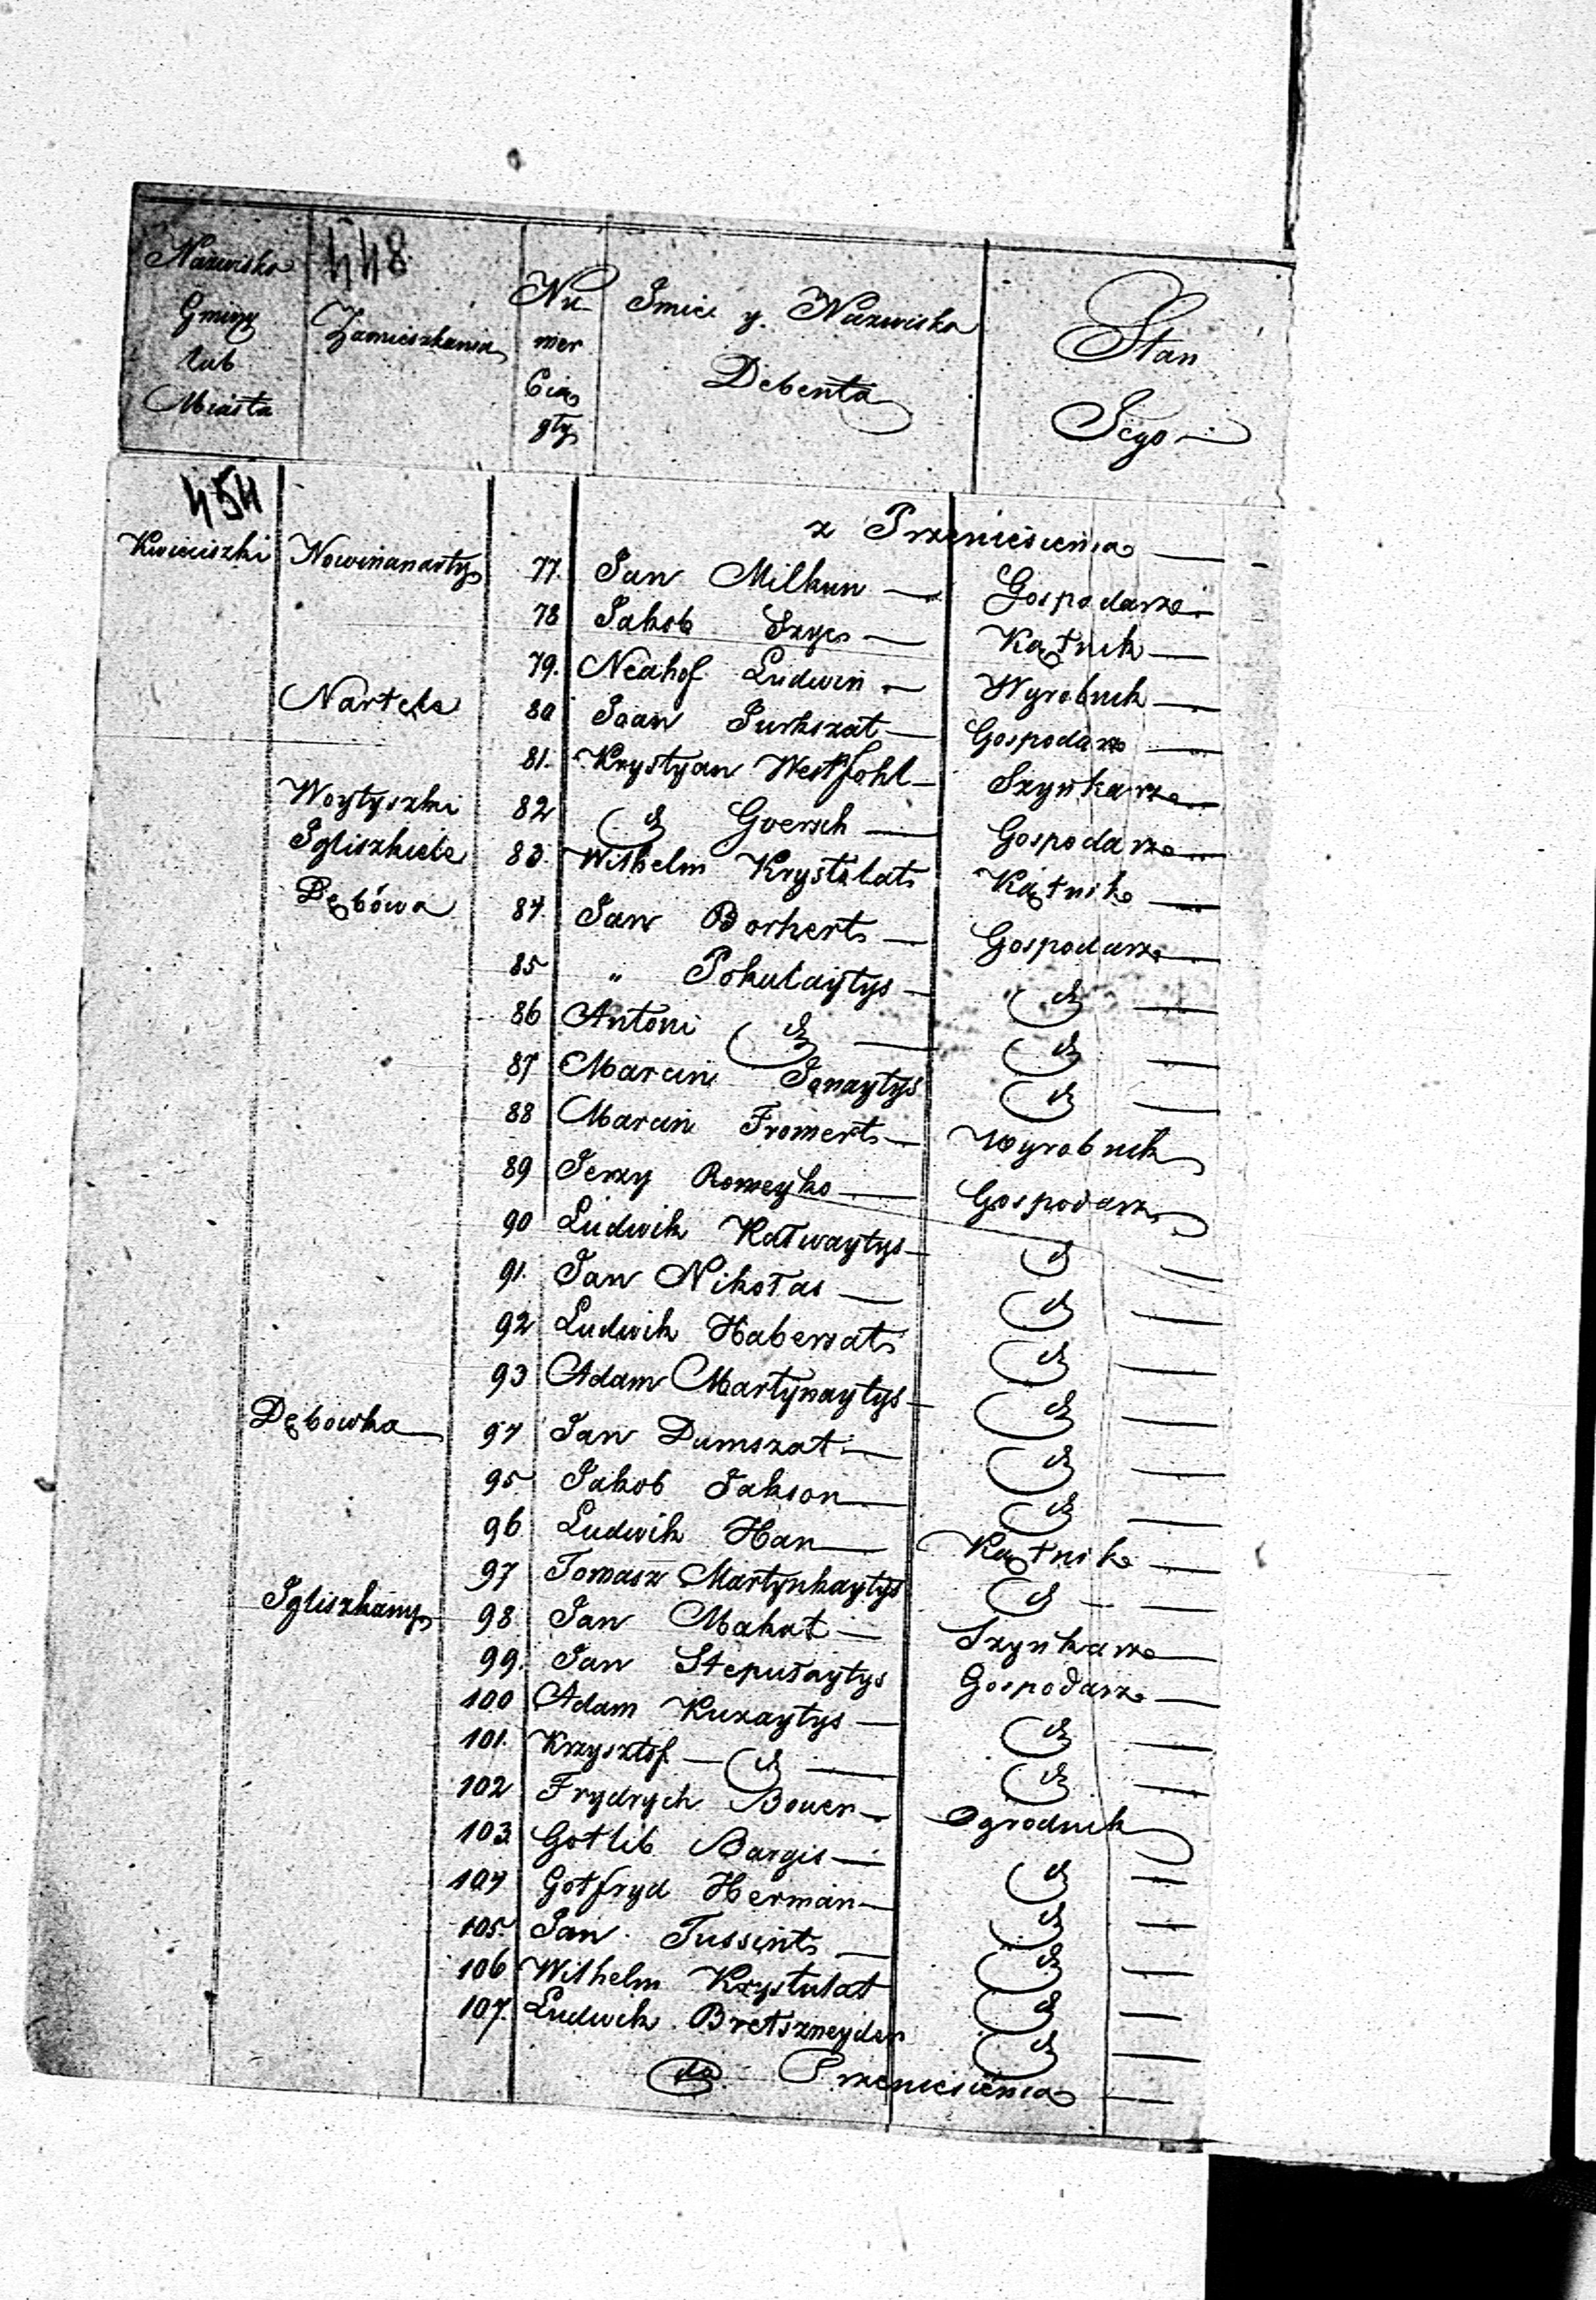 448
Nazwisko Gminy lub Miasta
Zamieszkania
Numer Ciągły
Imie y Nazwisko Debenta
Stan Jego
454
z Przeniesienia —
Kwieciszki Nowinanarty 77. Jan Milkun — Gospodarz —
78 Jakob Szyc — Kątnik —
79. Neahof Ludwin — Wyrobnik —
Nartele 80 Jaan Jurkszat — Gospodarz —
81. Krystyan Westfohl — Szynkarz —
Woytyszki 82 d Goersch — Gospodarz —
Igliszkiele 83. Wilhelm Krystolat Kątnik —
Dębówa 84. Jan Borhert — Gospodarz —
85 „ Pokulaytys — d —
86 Antoni d — d —
87 Marcin Jonaytys d —
88 Marcin Fromert — Wyrobnik
89 Jerzy Romeyko — Gospodarz
90 Ludwik Katwaytys — d —
91. Jan Nikołas — d —
92 Ludwik Habersat d —
93 Adam Martynaytys — d —
Dębowka 94 Jan Dumszat — d —
95 Jakob Jakson — d —
96 Ludwik Han — Kątnik —
97 Tomasz Martynkaytys d —
Igliszkany 98 Jan Makat — Szynkarz —
99. Jan Stepułaytys Gospodarz —
100 Adam Kuzaytys — d —
101. Krzysztof — d — d —
102 Frydrych Bouer — Ogrodnik
103 Gotlib Bargis — d —
104 Gotfryd Herman — d —
105. Jan Tussint — d —
106 Wilhelm Krystulat d —
107. Ludwik Bretszneyder d —
do Przeniesienia —